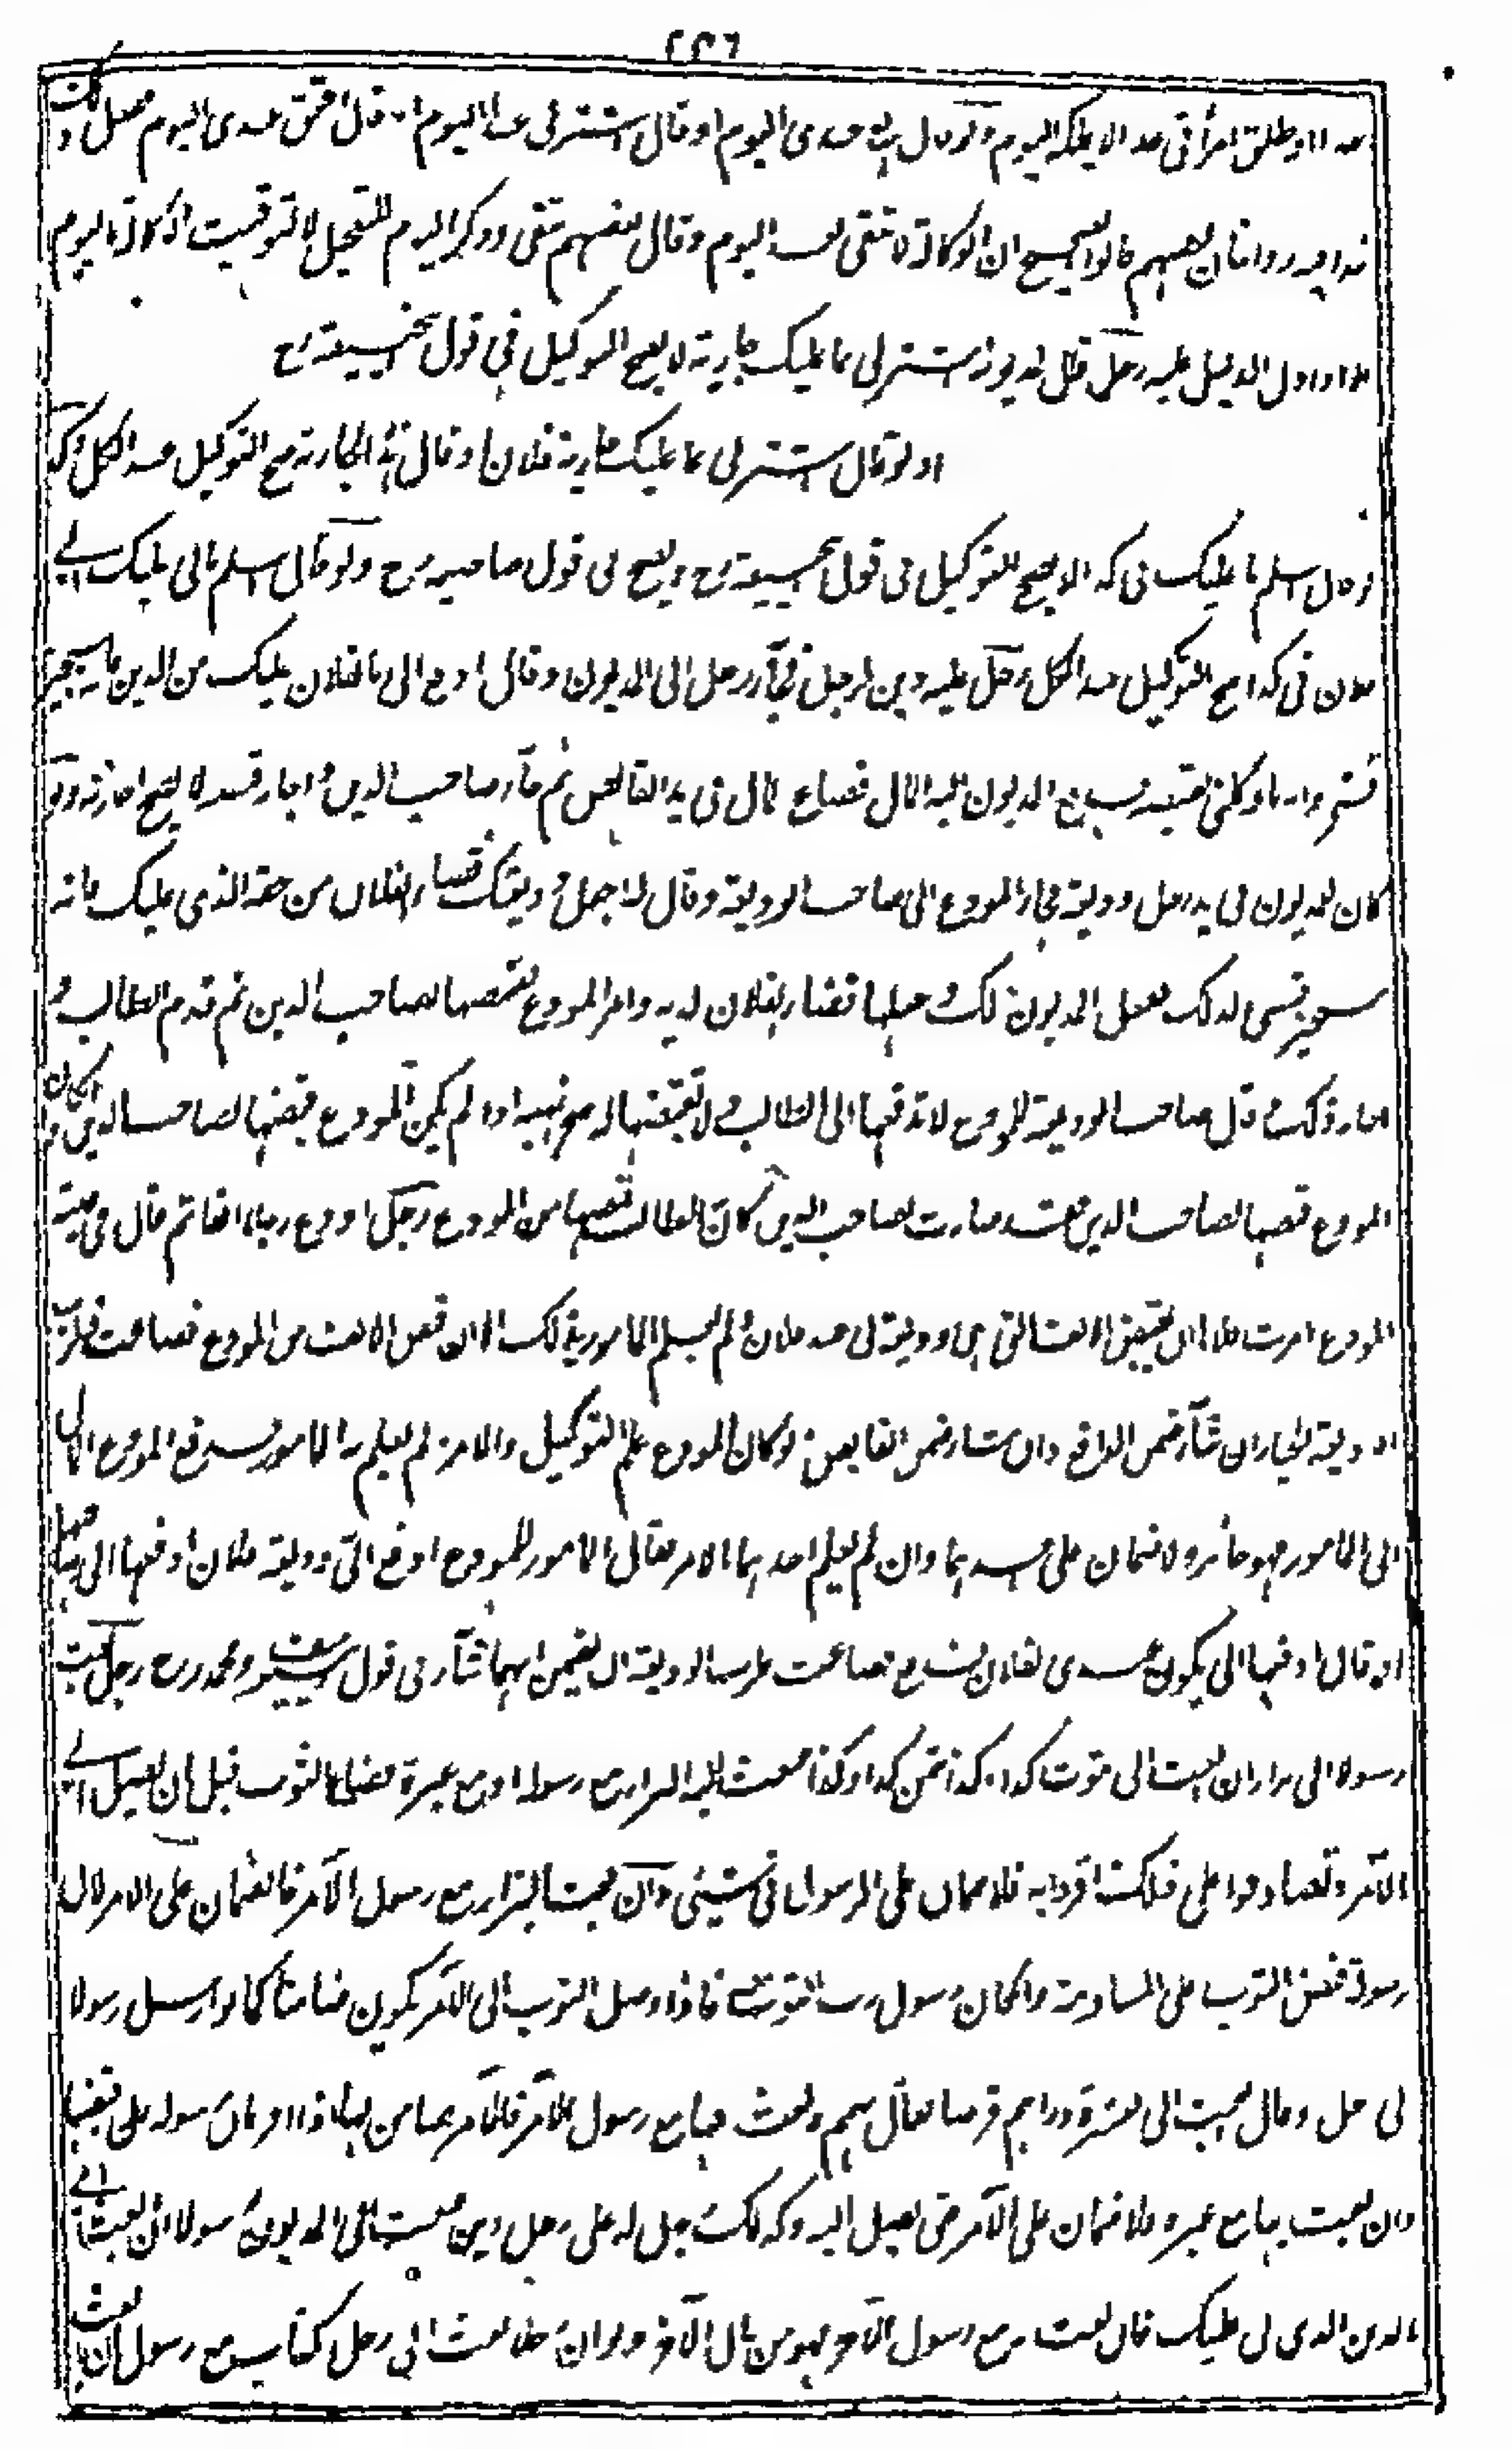 ٢٢٦
او طلق امرأتي غدا لا يملكه اليوم ولو قال بع عبدي اليوم او قال اشتر لي عبدا اليوم او قال اعتق عبدي اليوم ففعل ذلك
غدا فيه روايتان بعضهم قالوا الصحيح ان الوكالة لا تبقى بعد اليوم وقال بعضهم تبقى وذكر اليوم للتعجيل لا لتوقيت الوكالة باليوم
الدليل عليه رجل قال لمديونه اشتر لي بما عليك جارية لا يصح التوكيل في قول ابي حنيفة رح
ولو قال اشتر لي بما عليك جارية فلان او قال هذه الجارية صح التوكيل عند الكل وكذا
لو قال اسلم ما عليك في كذا لا يصح التوكيل في قول ابي حنيفة رح ويصح في قول صاحبيه رح ولو قال اسلم مالي عليك الى
فلان في كذا صح التوكيل عند الكل رجل عليه دين لرجل فجاء رجل الى المديون وقال ادفع الي ما لفلان عليك من الدين فانه سيجيز
قبضي وانه ما وكلني بقبضه فدفع المديون اليه المال فضاع المال في يد القابض ثم جاء صاحب الدين واجاز قبضه لا يصح اجازته ولو
كان للمديون في يد رجل وديعة فجاء المودع الى صاحب الوديعة وقال له اجعل وديعتك قضاء لفلان من حقه الذي عليك فانه
سيجيز قبضي لذلك ففعل المديون ذلك وجعلها قضاء لفلان لدينه وامر المودع بقبضها لصاحب الدين ثم قدم الطالب و
اجاز ذلك وقال صاحب الوديعة للمودع لا تدفعها الى الطالب ولا تقبضها له صح نهيه اذا لم يكن المودع قبضها لصاحب الدين وان كان
المودع قبضها لصاحب الدين فقد صارت لصاحب الدين كان الطالب قبضها من المودع رجل اودع رجلا الفا ثم قال في غيبة
المودع امرت فلانا ان يقبض الالف التي هي وديعة لي عند فلان ولم يعلم المامور بذلك الا انه قبض الالف من المودع فضاعت فلرب
الوديعة الخيار ان شاء ضمن الدافع وان شاء ضمن القابض ولو كان المودع علم التوكيل والامر ولم يعلم به المامور فدفع المودع المال
الى المامور فهو جائز ولا ضمان على احدهما وان لم يعلم احدهما الامر فقال المامور للمودع ادفع الي وديعة فلان ادفعها الى صاحبها
او قال ادفعها الي يكون عندي لفلان فدفع فضاعت فلرب الوديعة ان يضمن ايهما شاء في قول ابي يوسف ومحمد رح رجل بعث
رسولا الى بزاز ان ابعث الي ثوب كذا وكذا بثمن كذا وكذا فبعث اليه البزاز مع رسوله او مع غيره فضاع الثوب قبل ان يصل الى
الآمر وتصادقوا على ذلك واقروا به فلا ضمان على الرسول في شيئ وان بعث البزاز مع رسول الآمر فالضمان على الامر لان
رسوله قبض الثوب على المساومة وان كان رسول رب الثوب فاذا وصل الثوب الى الآمر يكون ضامنا كما لو ارسل رسولا
الى رجل وقال ابعث الي بعشرة دراهم قرضا فقال نعم وبعث بها مع رسول الآمر فالآمر ضامن لها اذا اقر بان رسوله على قبضها
وان بعث بها مع غيره فلا ضمان على الآمر حتى يصل اليه وكذلك رجل له على رجل دين فبعث الى المديون رسولا ان ابعث الي
بالدين الذي لي عليك فان بعث به مع رسول الآمر فهو من مال الآمر ولو ان رجلا بعث الى رجل بكتاب مع رسول ان ابعث